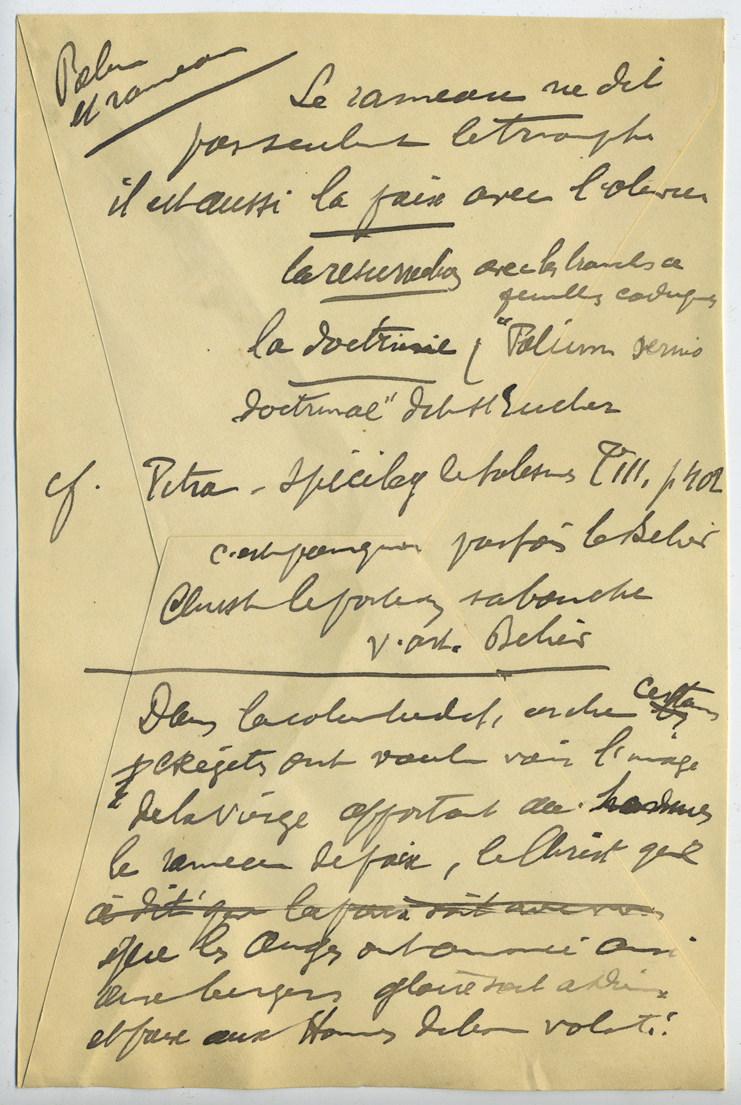 Palme
et rameau
Le rameau ne dit
pas seulement le triomphe
il est aussi la paix avec l'olivier
la resurrection avec les branches a
feuilles caduques
la doctrine ("Folium sermo
doctrinae" dit St Eucher
cf. Pitra - Spicileg de Solesmes T III, p 402
c'est pourquoi parfois le Belier
Christ le porte en sa bouche
V. art. Belier
Dans la colombe de l'arche certains
exégètes ont voulu voir l'image
de la Vierge apportant aux hommes
le rameau de paix, le Christ que
a dit que la paix soit avec vous
que les Anges ont annoncé ainsi
aux bergers gloire soit a Dieu
et paix aux Hommes de bonne volonté.